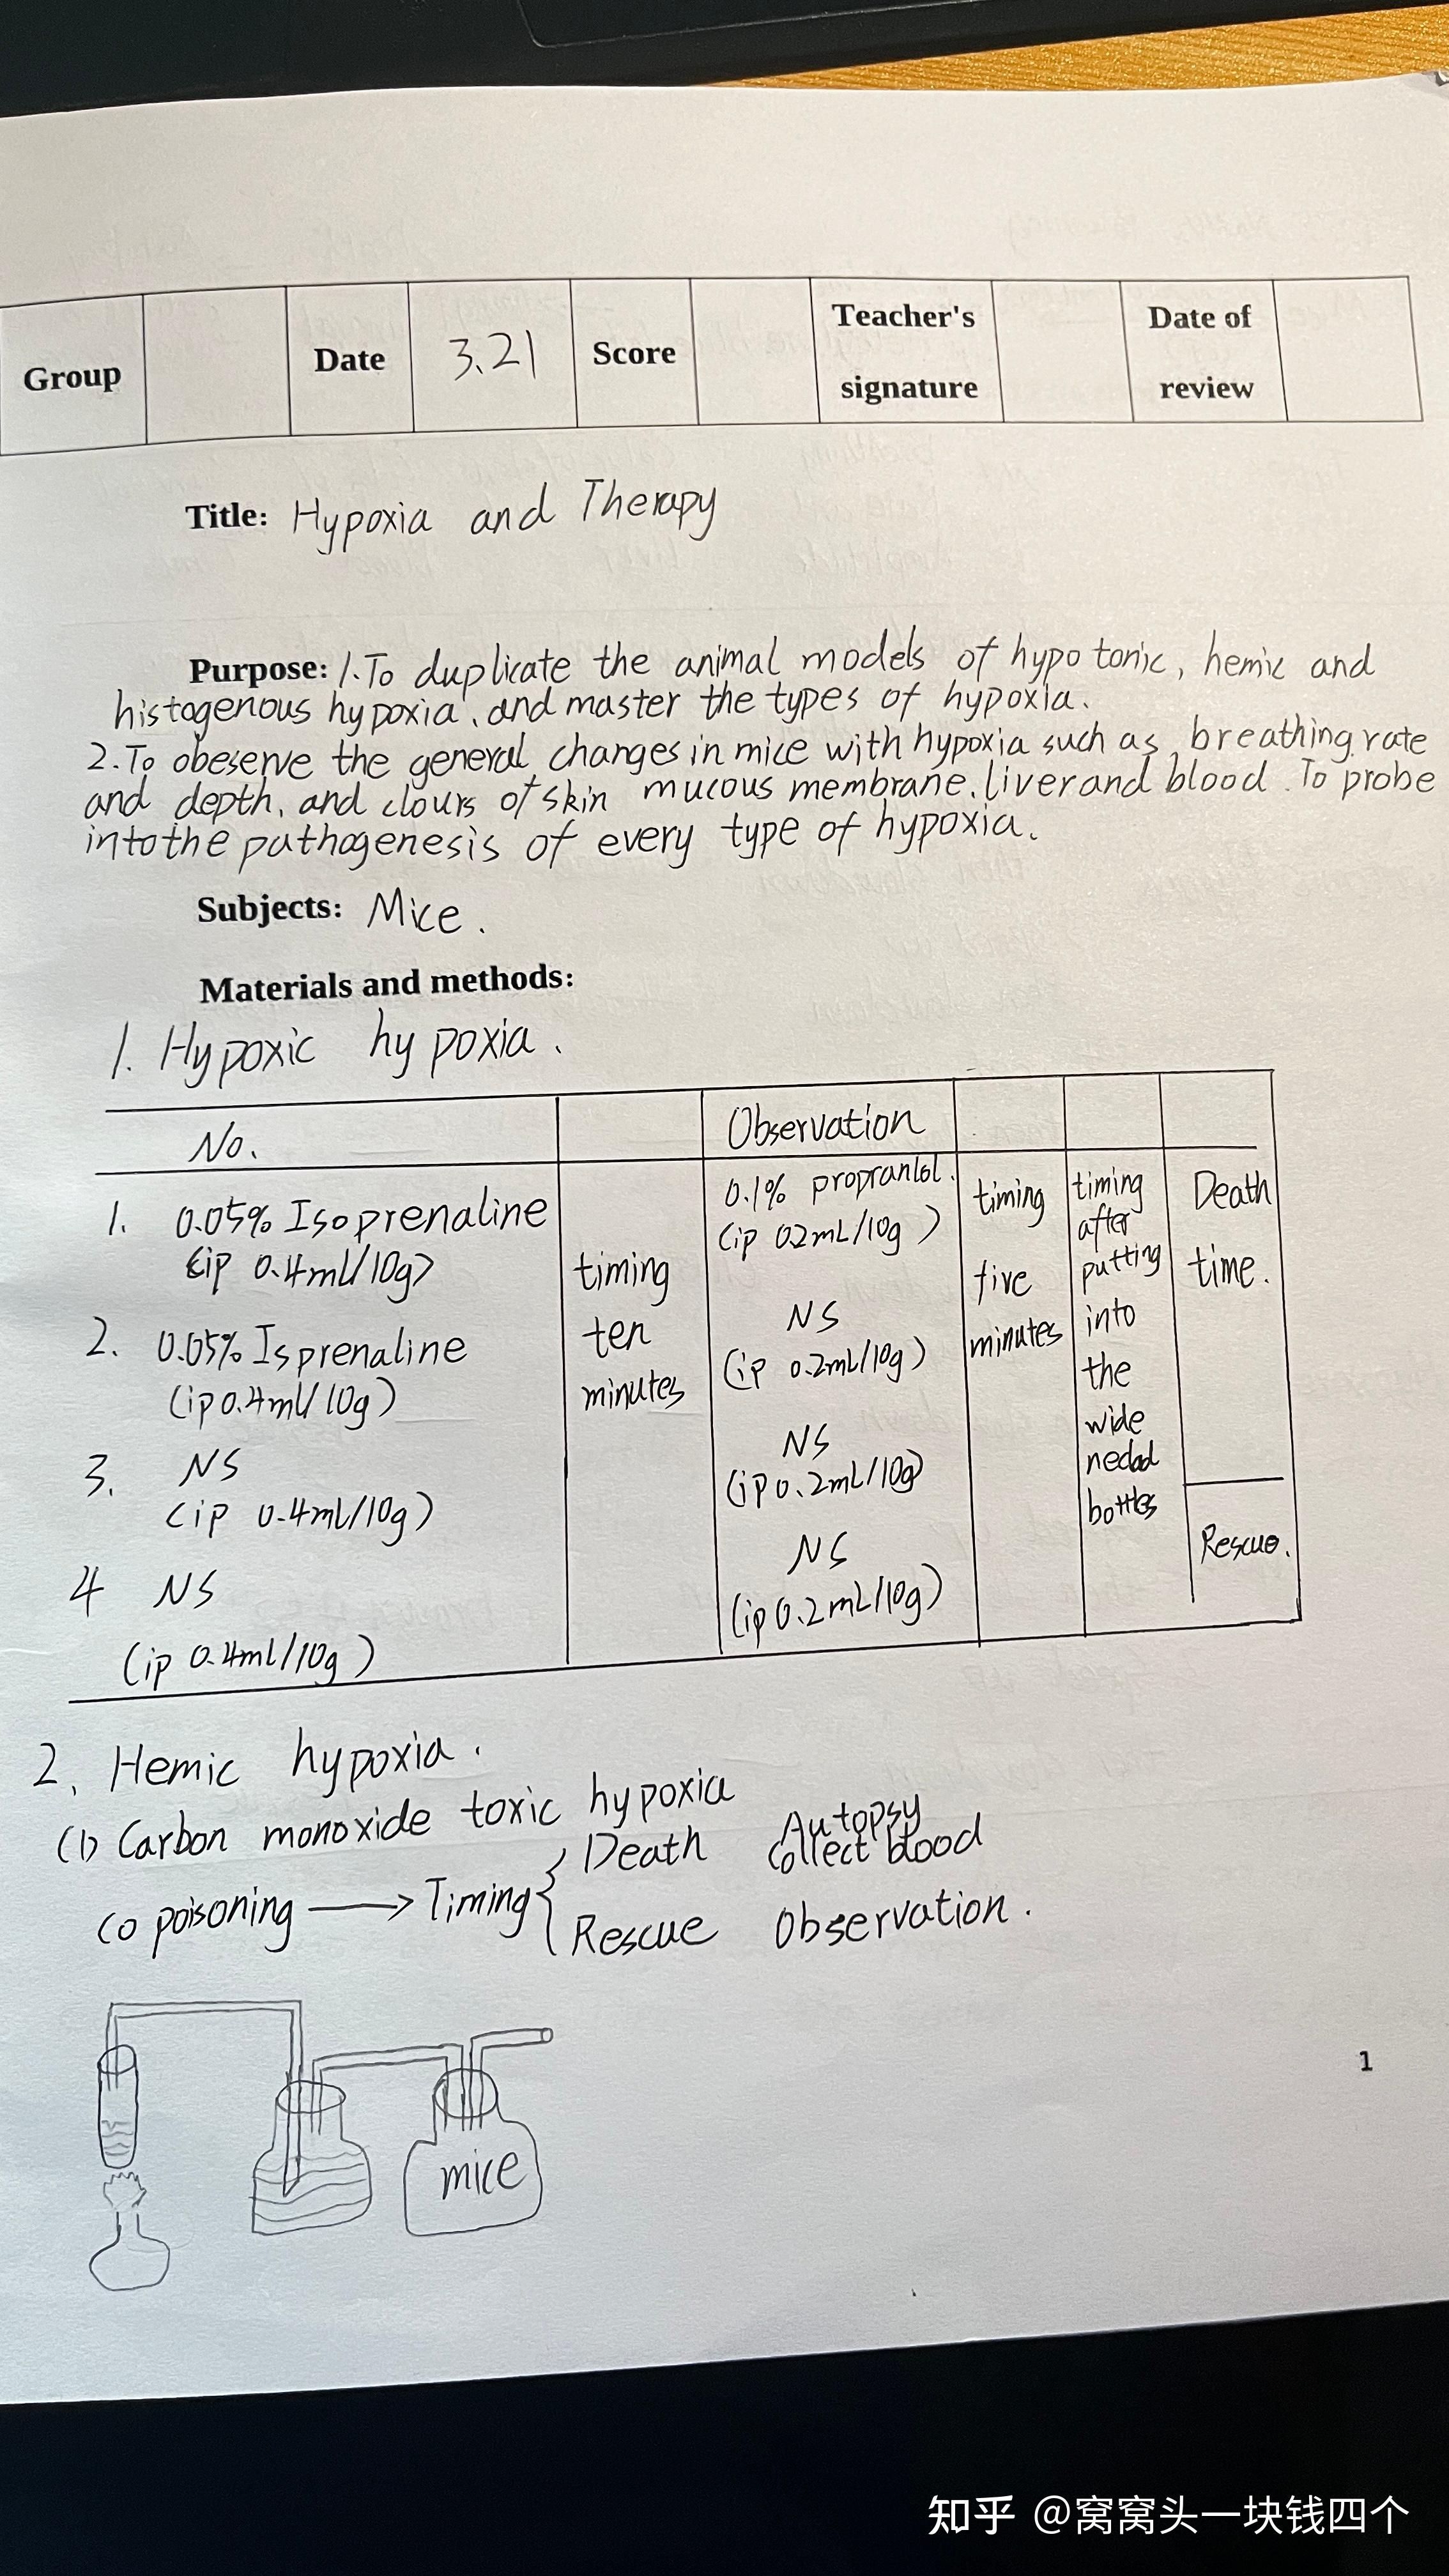 Group Date 3.21 Score Teacher's signature Date of review
Title: Hypoxia and Therapy
Purpose: 1.To duplicate the animal models of hypotonic, hemic and
histogenous hypoxia, and master the types of hypoxia.
2.To obeserve the general changes in mice with hypoxia such as, breathing rate
and depth, and clours of skin mucous membrane, liver and blood. To probe
into the pathogenesis of every type of hypoxia.
Subjects: Mice.
Materials and methods:
1. Hypoxic hypoxia.
No. Observation
1. 0.05% Isoprenaline
(ip 0.4ml/10g)
2. 0.05% Isprenaline
(ip 0.4ml/10g)
3. NS
(ip 0.4mL/10g)
4 NS
(ip 0.4ml/10g)
timing
ten
minutes
0.1% propranlol.
(ip 0.2mL/10g)
NS
(ip 0.2mL/10g)
NS
(ip 0.2mL/10g)
NS
(ip 0.2mL/10g)
timing
five
minutes
timing
after
putting
into
the
wide
bottles
Death
time.
Rescue.
2. Hemic hypoxia.
(1) Carbon monoxide toxic hypoxia
Co poisoning → Timing { Death Autopsy
Collect blood
Rescue Observation.
mice
1
知乎 @窝窝头一块钱四个